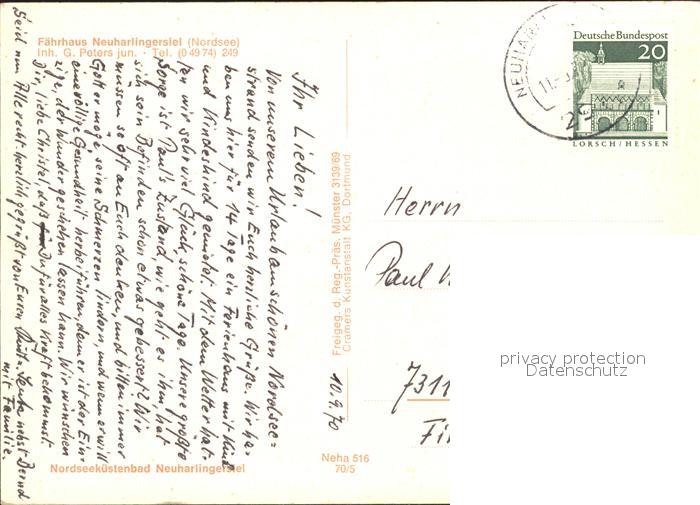 Fährhaus Neuharlingersiel (Nordsee)
Inh. G. Peters jun. · Tel. (0 49 74) 249
Ihr Lieben!
Von unserem Urlaub am schönen Nordsee=
strand senden wir Euch herzliche Grüße. Wir ha-
ben uns hier für 14 Tage ein Ferienhaus mit Kind
und Kindeskind gemietet. Mit dem Wetter hat-
ten wir sehr viel Glück, schöne Tage. Unsere größte
Sorge ist Paul's Zustand, wie geht es ihm, hat
sich sein Befinden schon etwas gebessert? Wir
müssen so oft an Euch denken, und bitten immer
Gott er möge seine Schmerzen lindern, und wenn er will
eine völlige Gesundheit herbeiführen, denn er ist der Ein-
zige, der Wunder geschehen lassen kann. Wir wünschen
Dir, liebe Christel, daß Du für alles Kraft bekommst.
Seid nun Alle recht herzlich gegrüßt von Euren nebst Bernd
mit Familie.
Nordseeküstenbad Neuharlingersiel
Freigeg. d. Reg.-Präs. Münster 3139/69
Cramers Kunstanstalt KG, Dortmund
10.9.70
Neha 516
70/5
NEUHA
11.-9
29
Deutsche Bundespost
20
LORSCH/HESSEN
Herrn
Paul
7311
privacy protection
Datenschutz